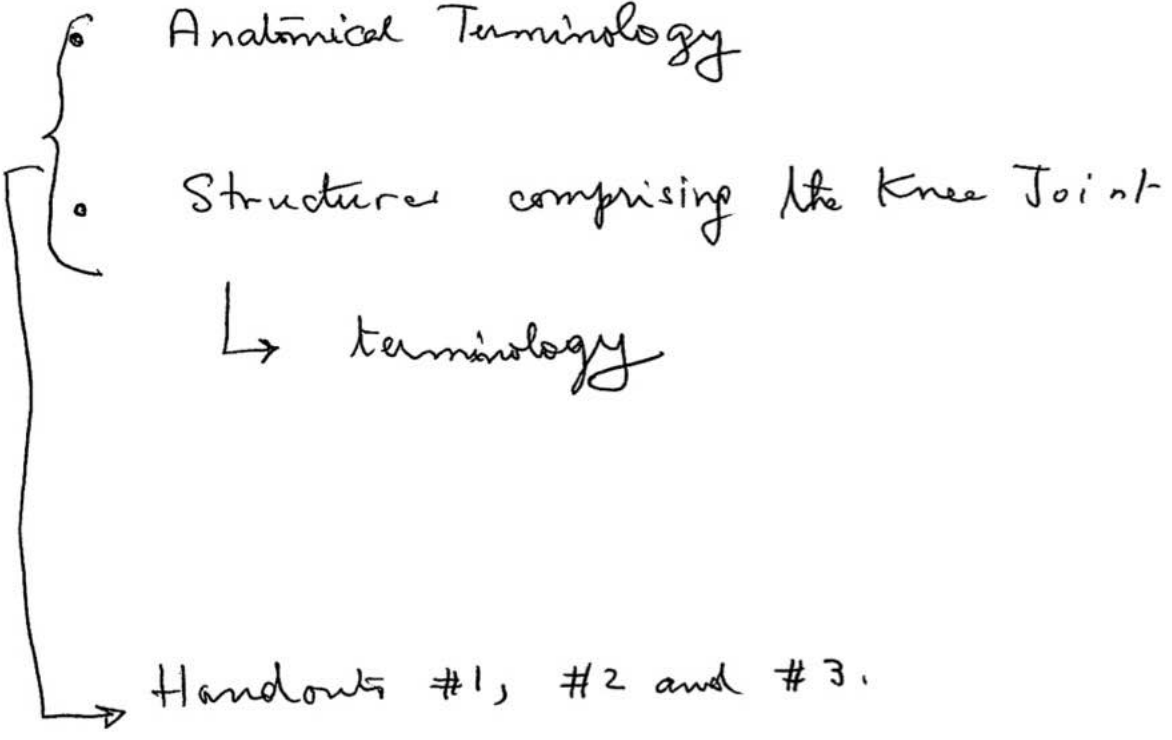 • Anatomical Terminology
• Structures comprising the Knee Joint
↳ terminology
→ Handouts #1, #2 and #3.